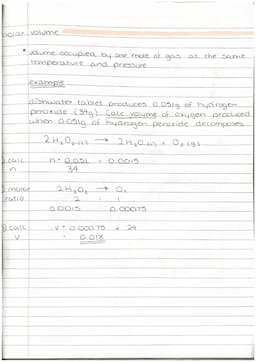 molar volume
• volume occupied by one mole of gas at the same
temperature and pressure
example
dishwater tablet produces 0.051g of hydrogen
peroxide (34g). Calc volume of oxygen produced
when 0.051g of hydrogen peroxide decomposes
2H₂O₂ (l) → 2H₂O (l) + O₂ (g)
1) calc n = 0.051 = 0.0015
n 34
molar 2H₂O₂ → O₂
ratio 2 : 1
0.0015 0.00075
3) calc V = 0.00075 × 24
V = 0.018